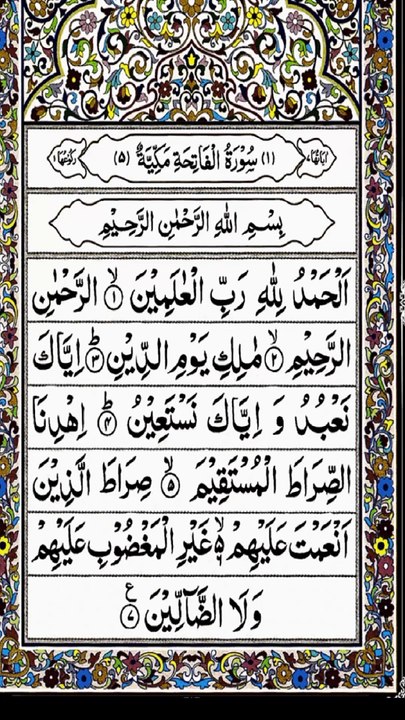 اٰيَاتُهَا ٧ (١) سُوْرَةُ الْفَاتِحَةِ مَكِّيَّةٌ (٥) رُكُوْعُهَا ١
بِسْمِ اللّٰهِ الرَّحْمٰنِ الرَّحِيْمِ
اَلْحَمْدُ لِلّٰهِ رَبِّ الْعٰلَمِيْنَ ۙ﴿١﴾ الرَّحْمٰنِ
الرَّحِيْمِ ۙ﴿٢﴾ مٰلِكِ يَوْمِ الدِّيْنِ ؕ﴿٣﴾ اِيَّاكَ
نَعْبُدُ وَ اِيَّاكَ نَسْتَعِيْنُ ؕ﴿٤﴾ اِهْدِنَا
الصِّرَاطَ الْمُسْتَقِيْمَ ۙ﴿٥﴾ صِرَاطَ الَّذِيْنَ
اَنْعَمْتَ عَلَيْهِمْ ۙ﴿٦﴾ غَيْرِ الْمَغْضُوْبِ عَلَيْهِمْ
وَلَا الضَّآلِّيْنَ ﴿٧﴾ ع